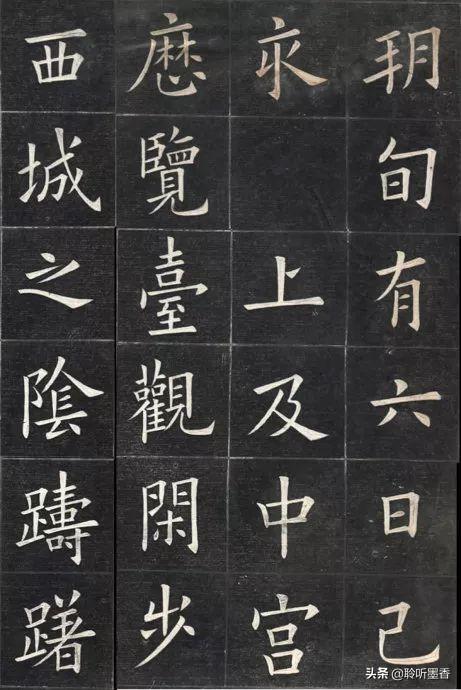 朔旬有六日己
亥上及中宫
歷覽臺觀閑步
西城之陰躊躇
头条 @聆听墨香